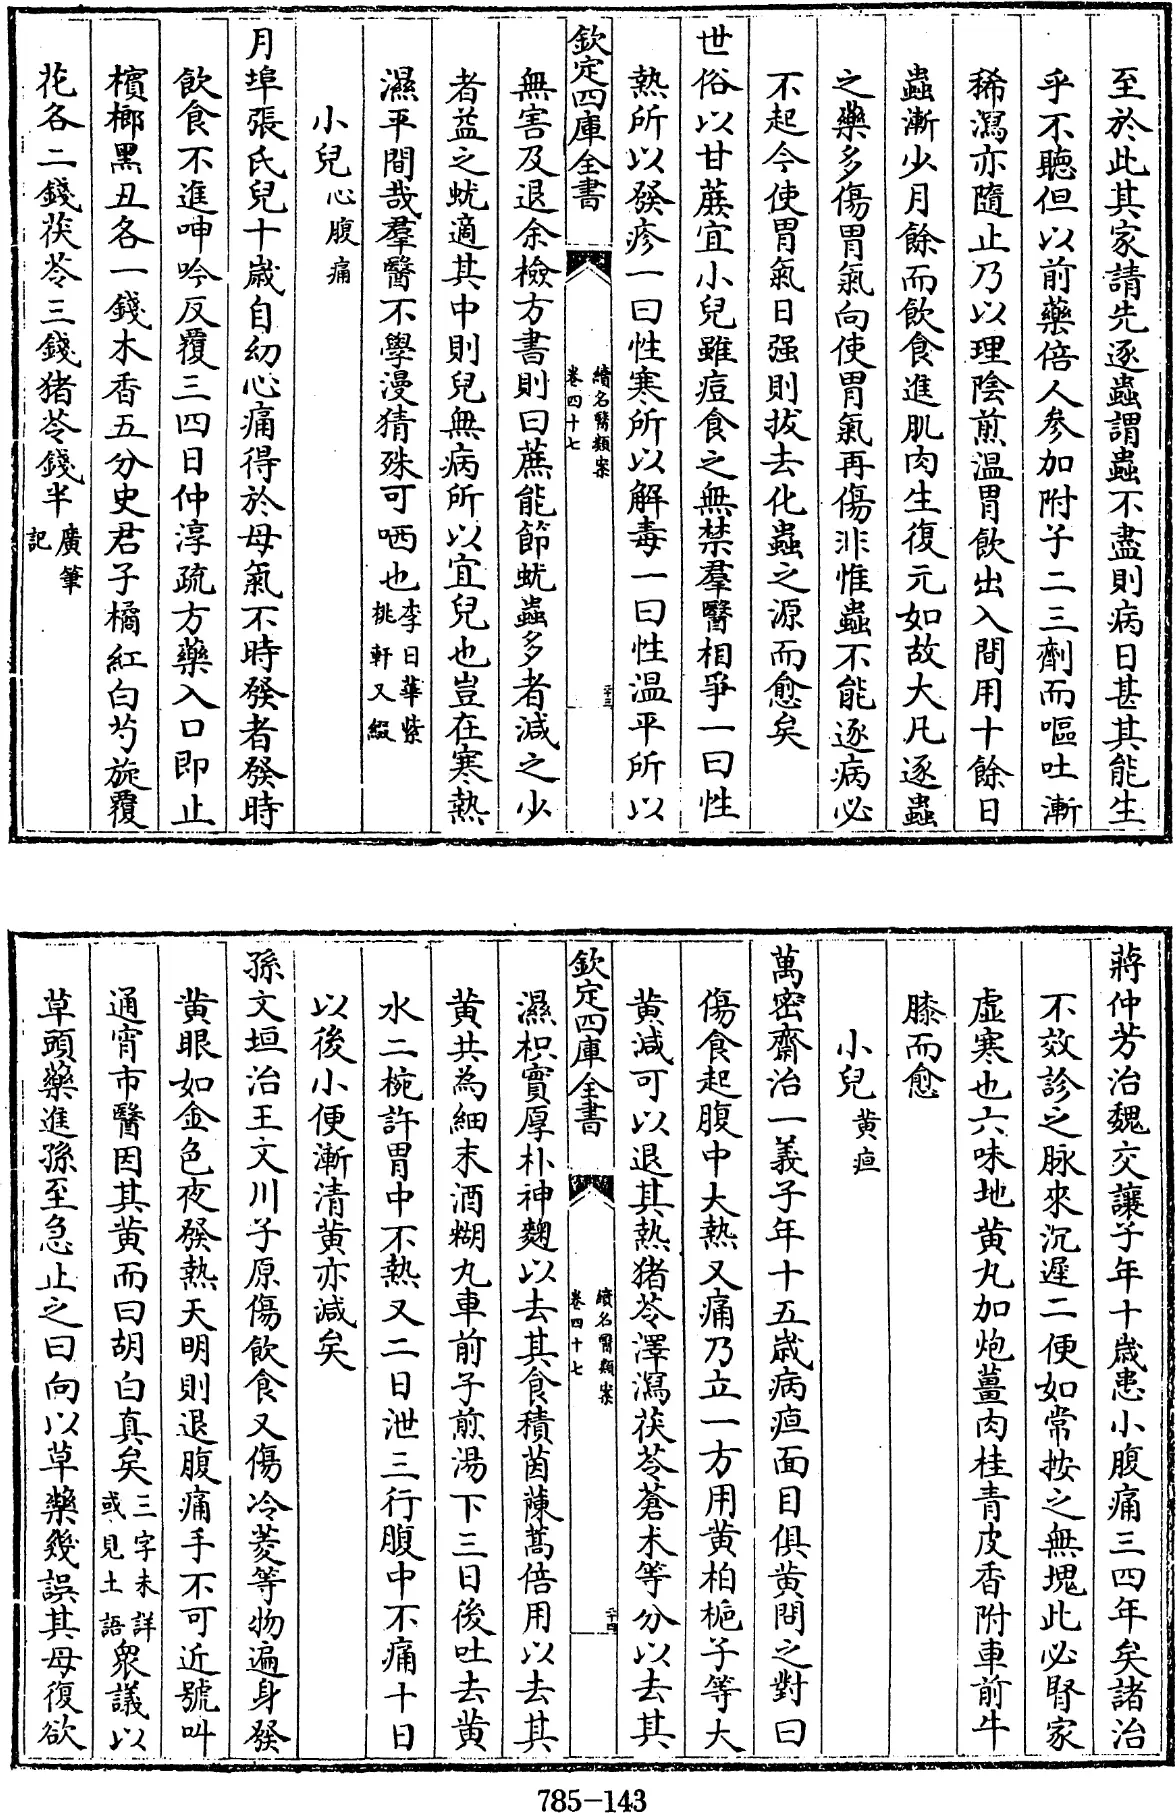 至於此其家請先逐蟲謂蟲不盡則病日甚其能生
乎不聽但以前藥倍人參加附子二三劑而嘔吐漸
稀瀉亦隨止乃以理陰煎溫胃飲出入間用十餘日
蟲漸少月餘而飲食進肌肉生復元如故大凡逐蟲
之藥多傷胃氣向使胃氣再傷非惟蟲不能逐病必
不起今使胃氣日强則拔去化蟲之源而愈矣
世俗以甘蔗宜小兒雖痘食之無禁羣醫相爭一曰性
熱所以發疹一曰性寒所以解毒一曰性温平所以
欽定四庫全書
續名醫類案
卷四十七
二十三
無害及退余檢方書則曰蔗能節蚘蟲多者減之少
者益之蚘適其中則兒無病所以宜兒也豈在寒熱
濕平間哉羣醫不學漫猜殊可哂也李日華紫
桃軒又綴
小兒心腹痛
月埠張氏兒十歲自幼心痛得於母氣不時發者發時
飲食不進呻吟反覆三四日仲淳疏方藥入口即止
檳榔黑丑各一錢木香五分史君子橘紅白芍旋覆
花各二錢茯苓三錢猪苓錢半廣筆
記
蔣仲芳治魏交讓子年十歲患小腹痛三四年矣諸治
不效診之脉來沉遲二便如常按之無塊此必腎家
虛寒也六味地黄丸加炮薑肉桂青皮香附車前牛
膝而愈
小兒黄疸
萬密齋治一義子年十五歲病疸面目俱黄問之對曰
傷食起腹中大熱又痛乃立一方用黄柏梔子等大
黄減可以退其熱猪苓澤瀉茯苓蒼术等分以去其
欽定四庫全書
續名醫類案
卷四十七
二十四
濕枳實厚朴神麴以去其食積茵蔯蒿倍用以去其
黄共為細末酒糊丸車前子煎湯下三日後吐去黄
水二椀許胃中不熱又二日泄三行腹中不痛十日
以後小便漸清黄亦減矣
孫文垣治王文川子原傷飲食又傷冷菱等物遍身發
黄眼如金色夜發熱天明則退腹痛手不可近號叫
通宵市醫因其黄而曰胡白真矣三字未詳
或見土語衆議以
草頭藥進孫至急止之曰向以草藥幾誤其母復欲
785-143